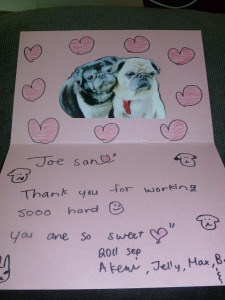 Joe san
Thank you for working
sooo hard
you are so sweet
2011 sep
Akemi, Jelly, Max, B.